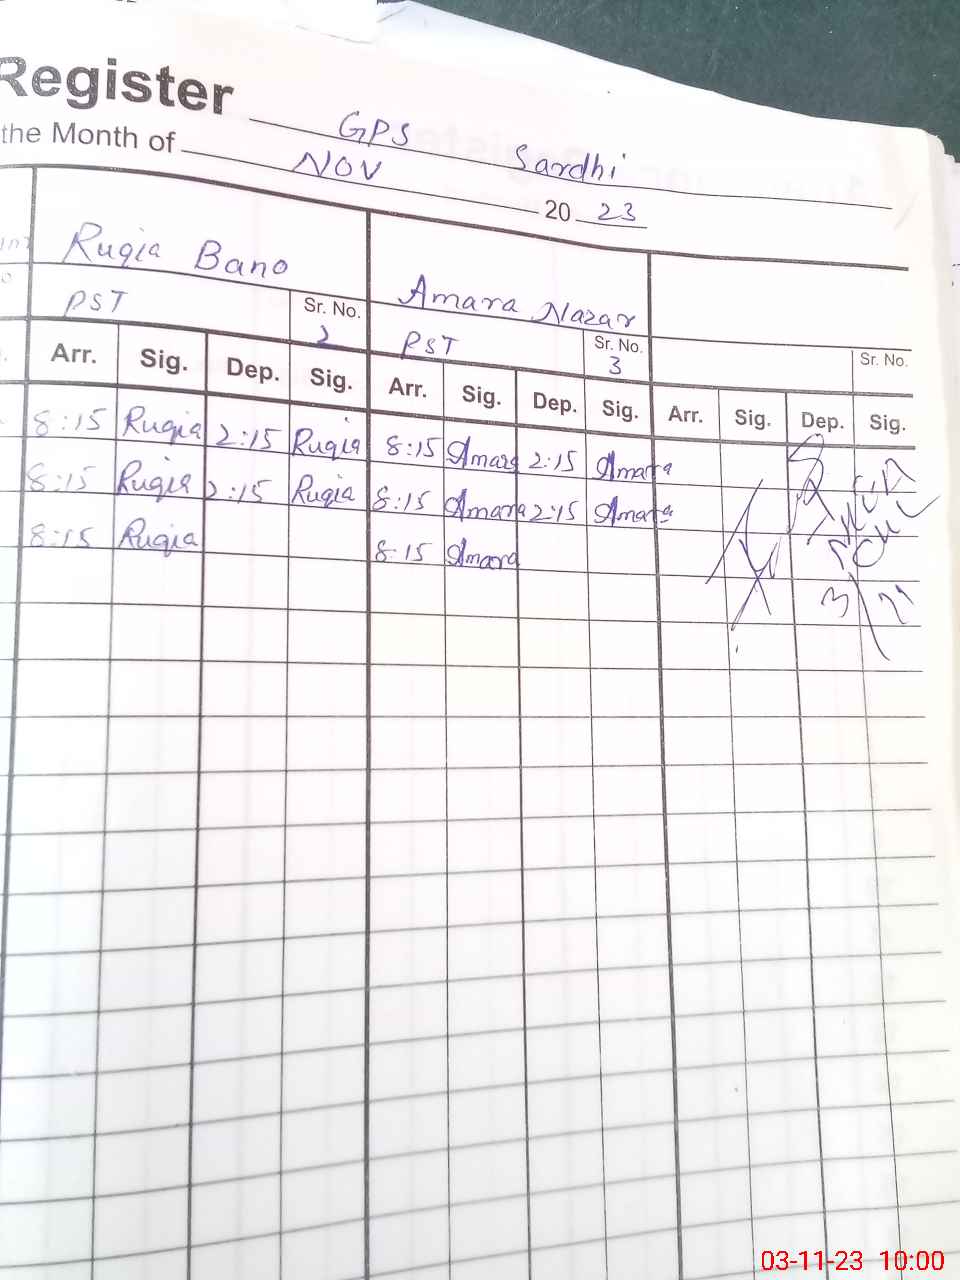 Register GPS Sardhi
the Month of NOV 20 23
Ruqia Bano Amara Nazar
PST Sr. No. 2 PST Sr. No. 3 Sr. No.
Arr. Sig. Dep. Sig. Arr. Sig. Dep. Sig. Arr. Sig. Dep. Sig.
8:15 Ruqia 2:15 Ruqia 8:15 Amara 2:15 Amara
8:15 Ruqia 2:15 Ruqia 8:15 Amara 2:15 Amara
8:15 Ruqia 8:15 Amara
03-11-23 10:00